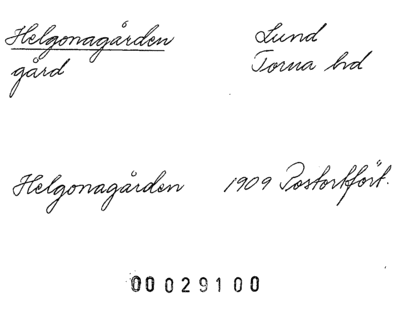 Helgonagården Lund
gård Torna hd
Helgonagården 1909 Postortfört.
00029100